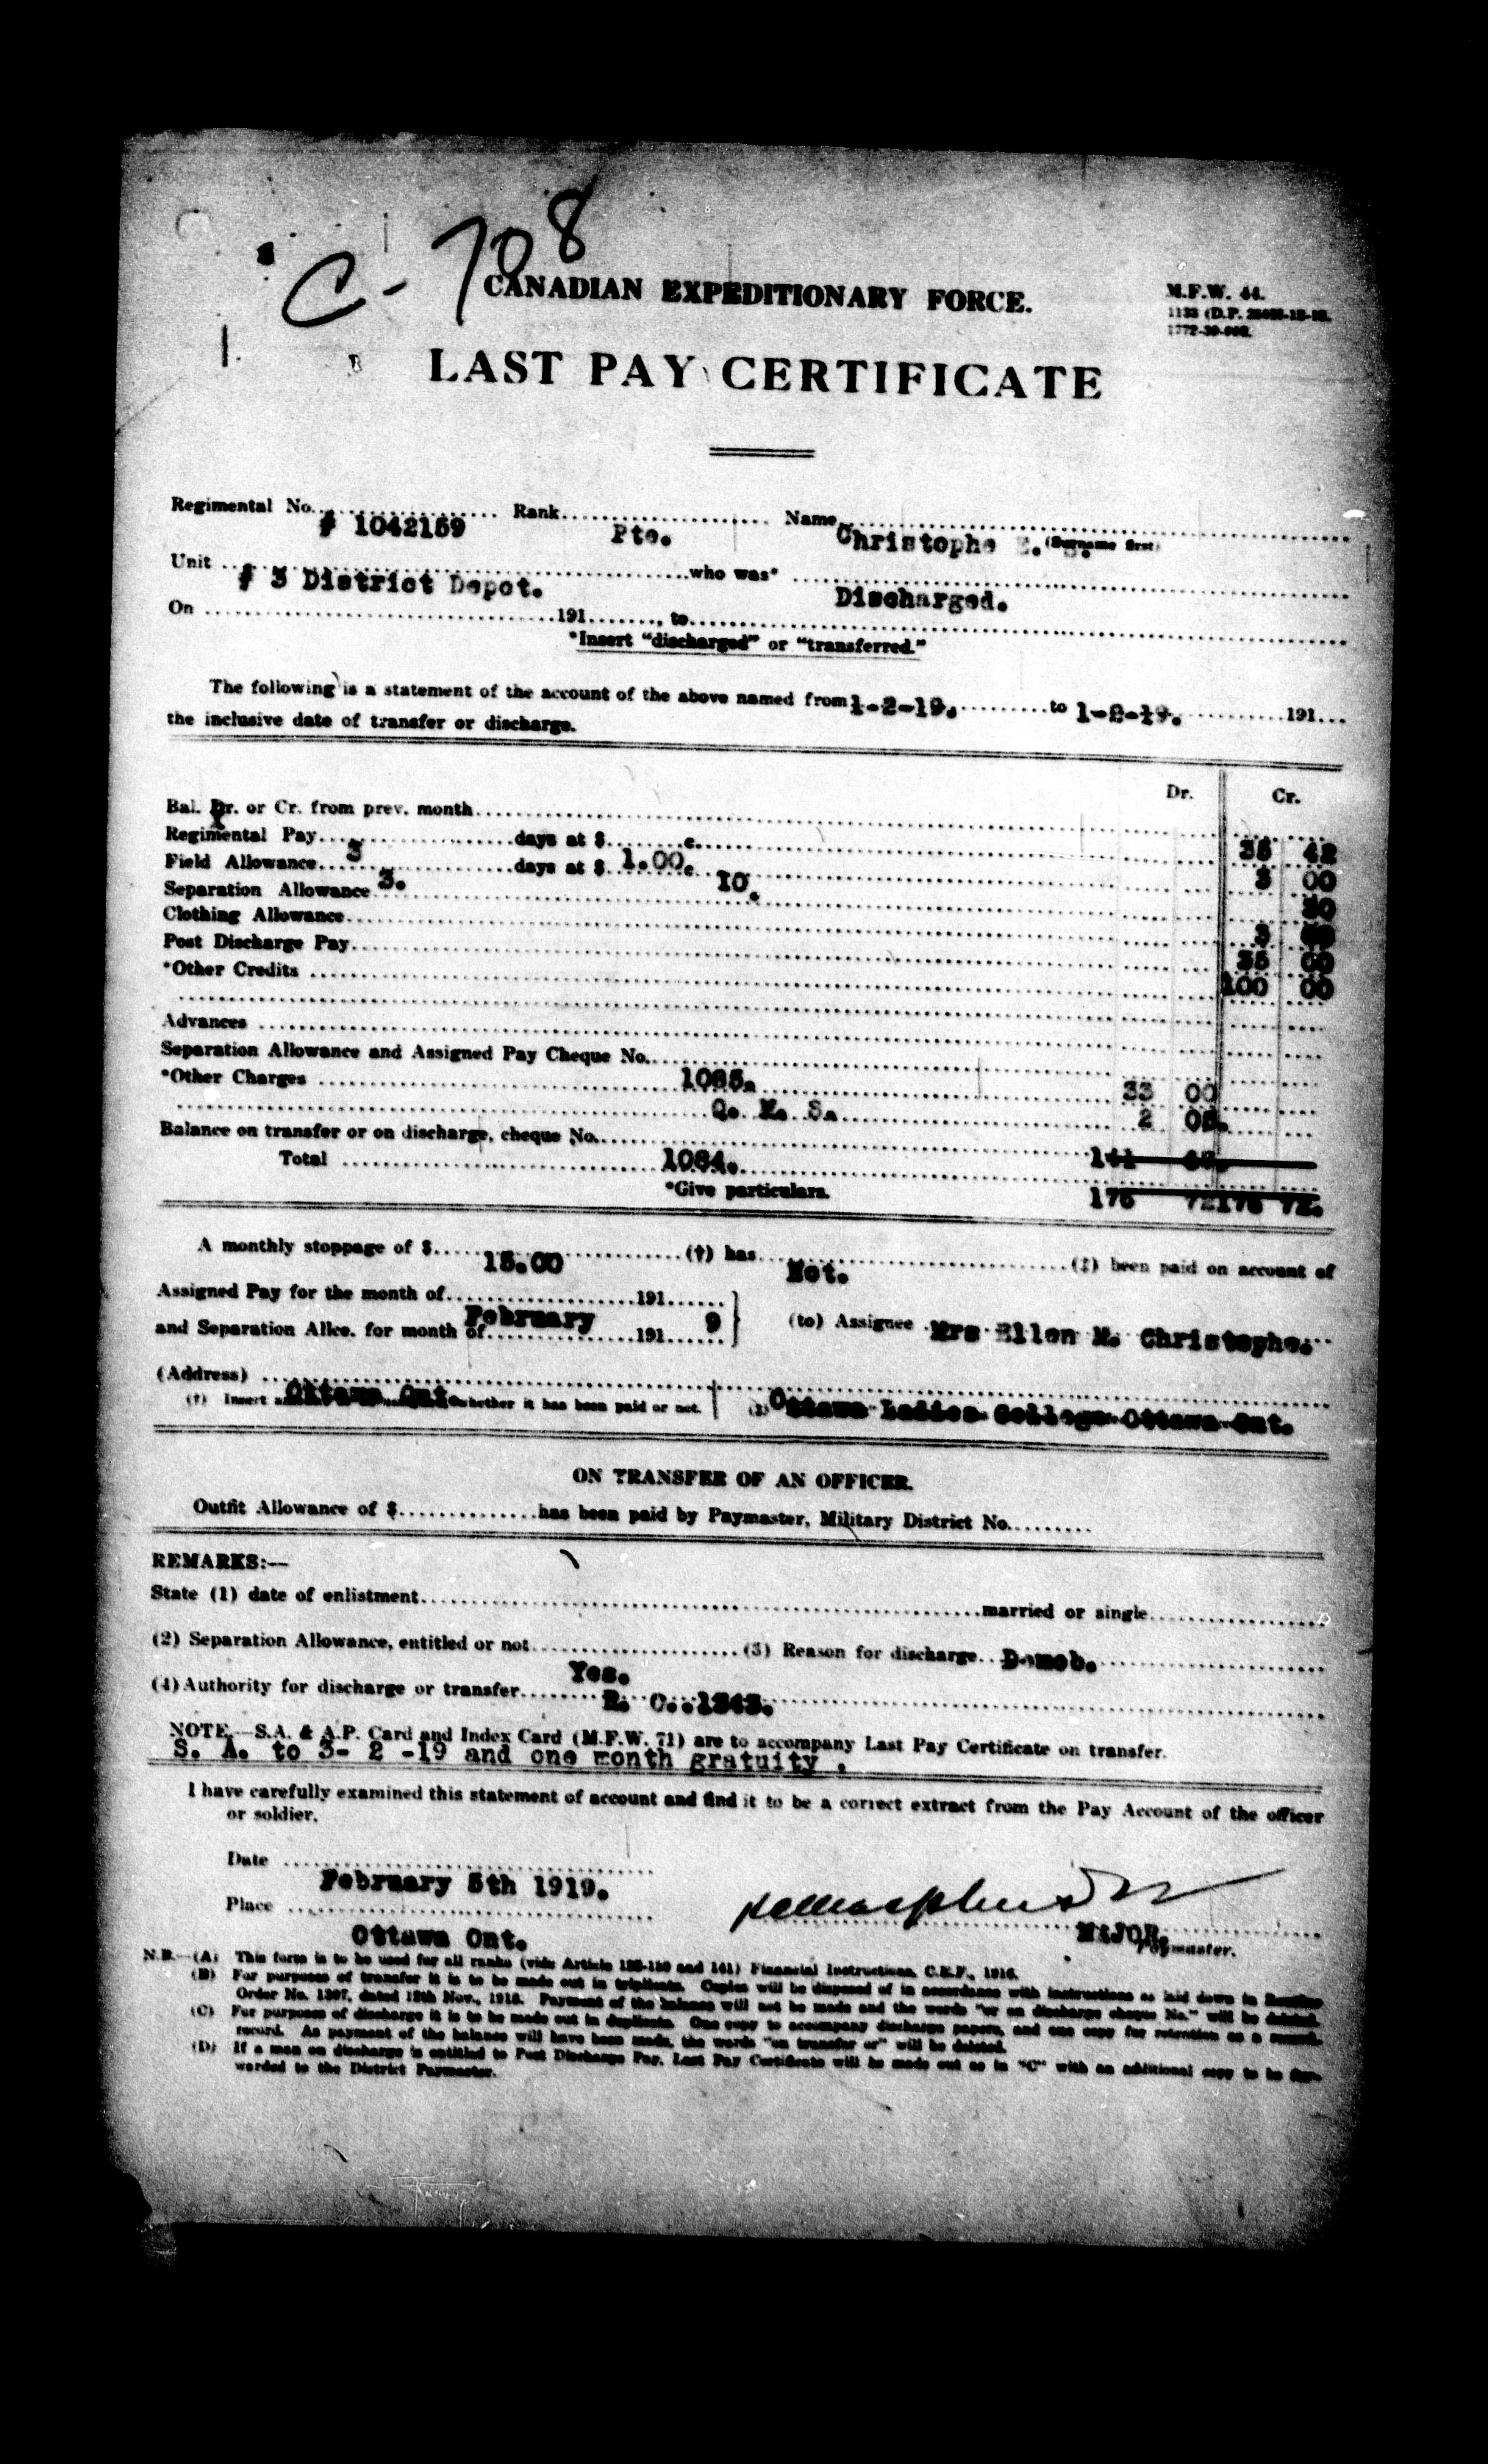 C-708
CANADIAN EXPEDITIONARY FORCE.
M.F.W. 44.
LAST PAY CERTIFICATE
Regimental No. # 1042159 Rank Pte. Name Christophe E. (Surname first)
Unit # 3 District Depot. who was* Discharged.
On 191 , to
*Insert "discharged" or "transferred."
The following is a statement of the account of the above named from 1-2-19. to 191
the inclusive date of transfer or discharge.
Dr. Cr.
Bal. Dr. or Cr. from prev. month 35 42
Regimental Pay 3 days at $ 1.00 c. 3 00
Field Allowance 3. days at $ c. 10. 30
Separation Allowance 3
Clothing Allowance 35 00
Post Discharge Pay 100 00
*Other Credits
Advances
Separation Allowance and Assigned Pay Cheque No. 1065. 33 00
*Other Charges Q. M. S. 2 05.
Balance on transfer or on discharge, cheque No. 1064. 141
Total 176 72 176 72.
*Give particulars.
A monthly stoppage of $ 15.00 (†) has Not. (‡) been paid on account of
Assigned Pay for the month of February 191 9
and Separation Allce. for month of 191
(to) Assignee Mrs Ellen M. Christophe.
(Address) Ottawa Ont. Ottawa Ladies College Ottawa Ont.
(†) Insert whether it has been paid or not. (‡)
ON TRANSFER OF AN OFFICER.
Outfit Allowance of $ has been paid by Paymaster, Military District No.
REMARKS:—
State (1) date of enlistment married or single
(2) Separation Allowance, entitled or not Yes. (3) Reason for discharge Demob.
(4) Authority for discharge or transfer R. O. 1343.
NOTE.—S.A. & A.P. Card and Index Card (M.F.W. 71) are to accompany Last Pay Certificate on transfer.
S. A. to 3- 2 -19 and one month gratuity .
I have carefully examined this statement of account and find it to be a correct extract from the Pay Account of the officer
or soldier.
Date February 5th 1919.
Place Ottawa Ont.
MAJOR.
Paymaster.
N.B.—(A) This form is to be used for all ranks (vide Article 125-150 and 161) Financial Instructions, C.E.F., 1916.
(B) For purposes of transfer it is to be made out in triplicate. Copies will be disposed of in accordance with instructions as laid down in Routine
Order No. 1397, dated 12th Nov., 1918. Payment of the balance will not be made and the words "or on discharge cheque No." will be deleted.
(C) For purposes of discharge it is to be made out in duplicate. One copy to accompany discharge papers, and one copy for retention as a record.
record. As payment of the balance will have been made, the words "on transfer or" will be deleted.
(D) If a man on discharge is entitled to Post Discharge Pay, Last Pay Certificate will be made out as in "C" with an additional copy to be for-
warded to the District Paymaster.